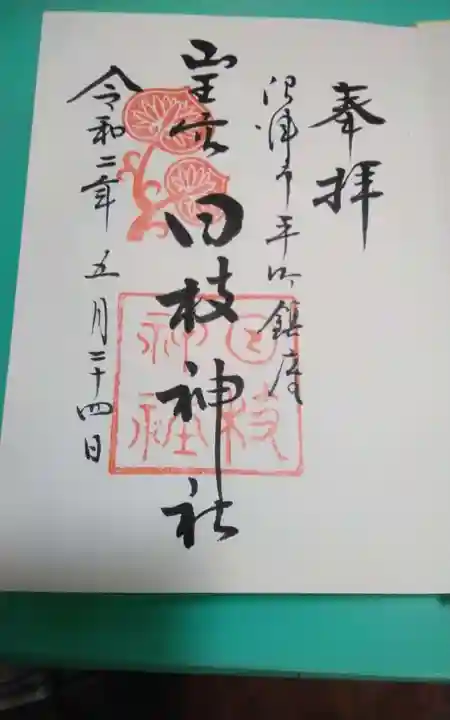 奉拝
沼津市平町鎮座
山王宮 日枝神社
令和二年 五月二十四日
日枝
神社